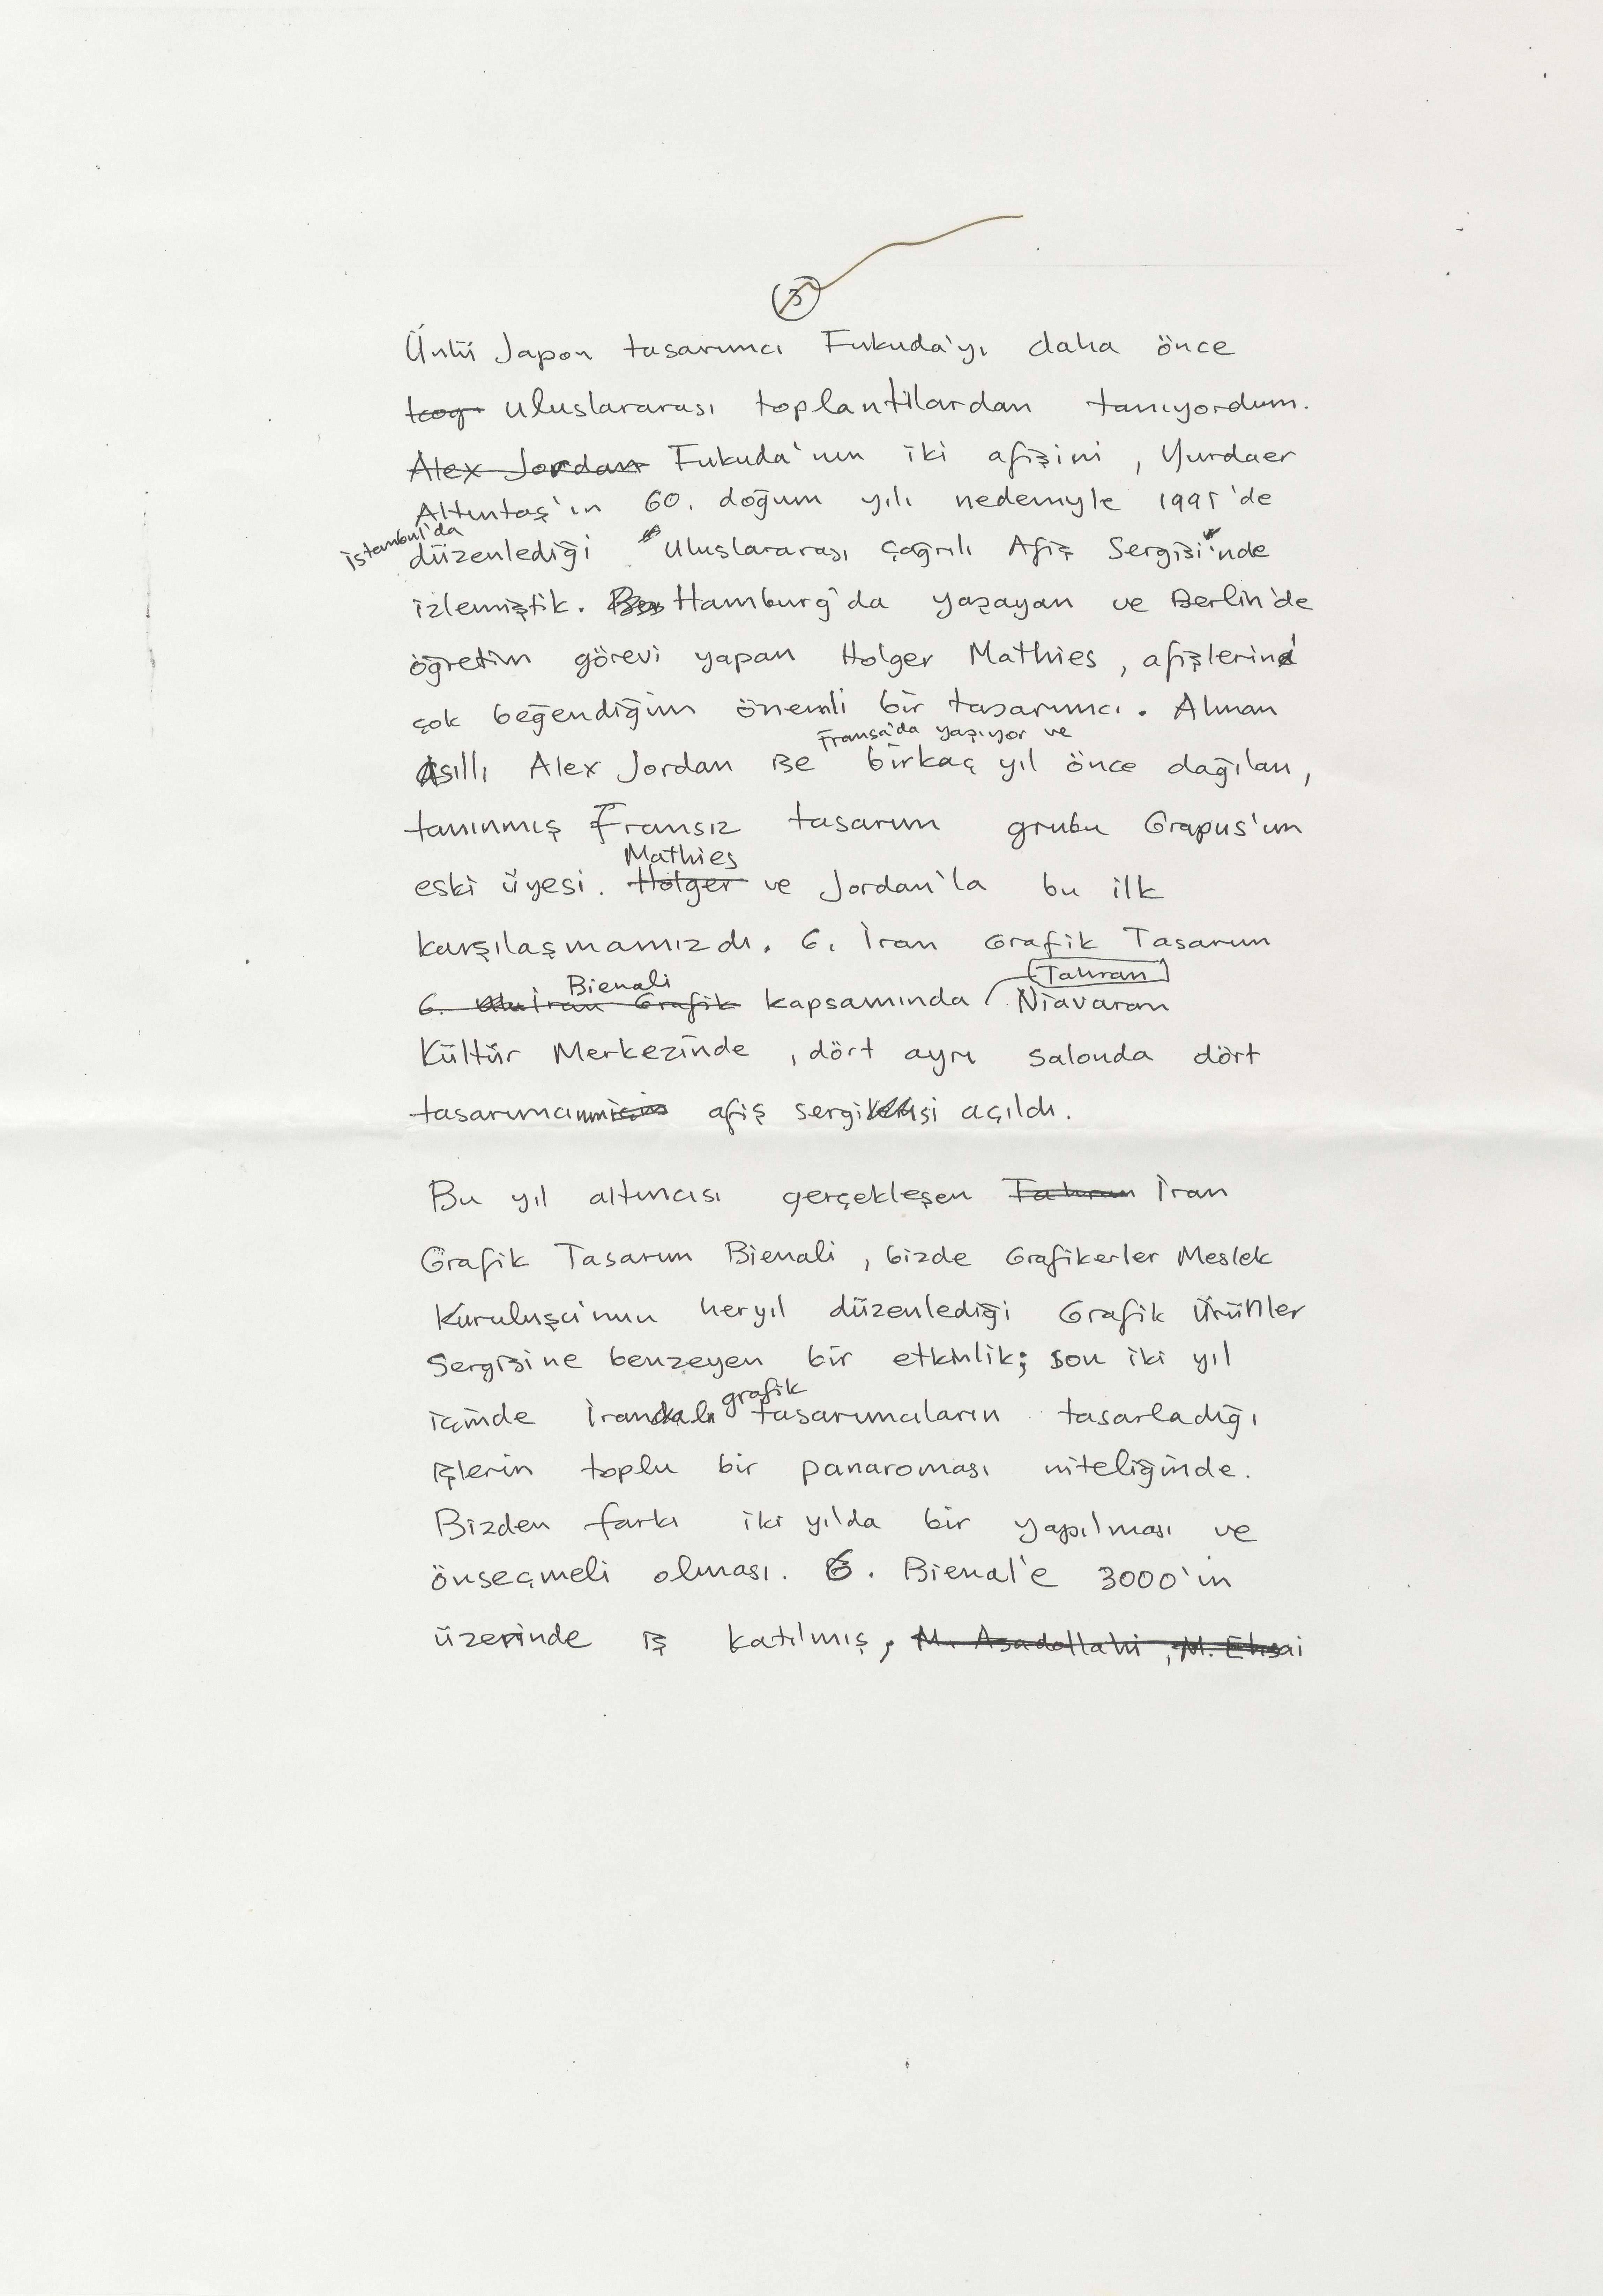 3
Ünlü Japon tasarımcı Fukuda'yı daha önce
uluslararası toplantılardan tanıyordum.
Alex Jordan Fukuda'nın iki afişini, Yurdaer
Altıntaş'ın 60. doğum yılı nedeniyle 1995'de
İstanbul'da
düzenlediği "Uluslararası Çağrılı Afiş Sergisi"nde
izlemiştik. Hamburg'da yaşayan ve Berlin'de
öğretim görevi yapan Holger Mathies, afişlerini
çok beğendiğim önemli bir tasarımcı. Alman
Fransa'da yaşıyor ve
asıllı Alex Jordan ise birkaç yıl önce dağılan,
tanınmış Fransız tasarım grubu Grapus'un
Mathies
eski üyesi. Holger ve Jordan'la bu ilk
karşılaşmamızdı. 6. İran Grafik Tasarım
Tahran
Bienali
6. İran Grafik kapsamında Niavaran
Kültür Merkezinde, dört ayrı salonda dört
tasarımcının afiş sergisi açıldı.
Bu yıl altıncısı gerçekleşen Tahran İran
Grafik Tasarım Bienali, bizde Grafikerler Meslek
Kuruluşu'nun heryıl düzenlediği Grafik Ürünler
Sergisine benzeyen bir etkinlik; son iki yıl
grafik
içinde İranlı tasarımcıların tasarladığı
işlerin toplu bir panaroması niteliğinde.
Bizden farkı iki yılda bir yapılması ve
önseçmeli olması. 6. Bienal'e 3000'in
üzerinde iş katılmış, M. Asadollahi, M. Ehsai